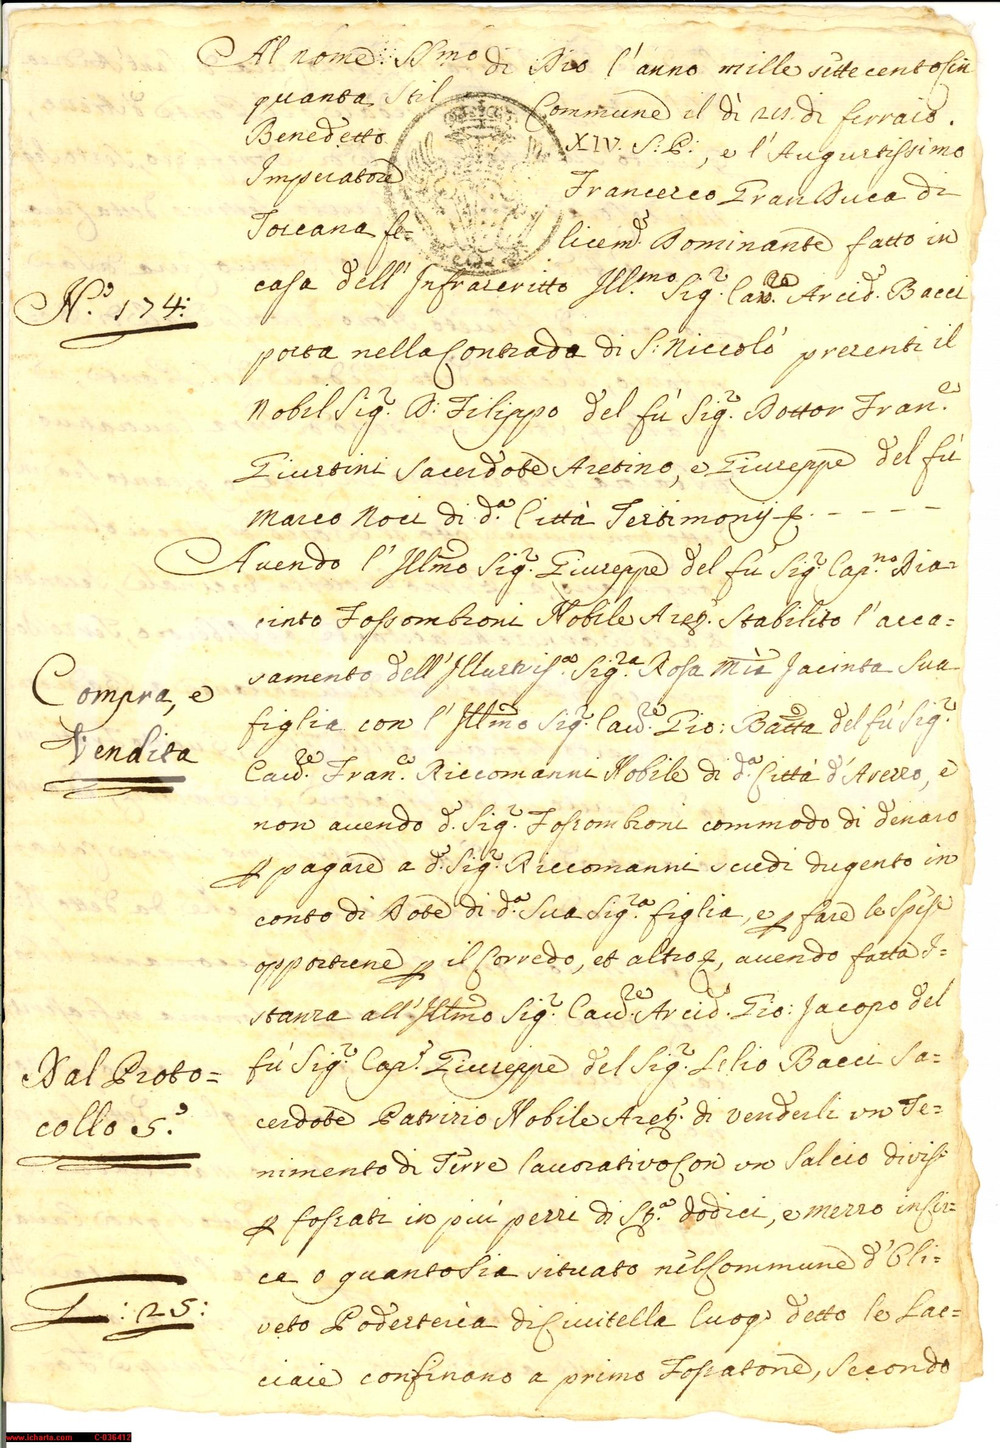 Al nome SS.mo di Dio l'anno mille settecentocin
quanta Stil Commune il dì 21. di ferraio.
Benedetto XIV. S. P:, e l'Augustissimo
Imperatore Francesco Gran Duca di
Toscana fe= licem.e Dominante fatto in
casa dell'Infrascritto Ill.mo Sig.r Cav.re Arcid. Bacci
N.o 174:
posta nella Contrada di S: Niccolò presenti il
Nobil Sig.r D: Filippo del fù Sig.r Dottor Fran.o
Giustini Sacerdote Aretino, e Giuseppe del fù
Marco Noci di d.a Città Testimonij
Avendo l'Illmo Sig.r Giuseppe del fu Sig.r Cap.no Dia=
cinto Fossombroni Nobile Arez. stabilito l'acca=
samento dell'Illustris.a Sig.ra Rosa Mia Jacinta Sua
Compra, e
Vendita
figlia con l'Illmo Sig.r Cav.re Gio: Batta del fù Sig.r
Cav.re Fran.o Riccomanni Nobile di d.a Città d'Arezzo, e
non avendo d. Sig.r Fossombroni commodo di denaro
p pagare a d. Sig.r Riccomanni scudi dugento in
conto di Dote di d.a Sua Sig.ra figlia, e p fare le Spese
opportune p il Corredo, et altro, avendo fatta I=
stanza all'Illmo Sig.r Cav.re Arcid. Gio: Jacopo del
Dal Proto=
collo 5.o
fù Sig.r Cap. Giuseppe del Sig.r Lelio Bacci Sa=
cerdote Patrizio Nobile Arez. di venderli un Te=
nimento di Terre lavorativo Con un Salcio divisi
p fossati in più pezzi di St.a dodici, e mezzo in Cir=
ca o quanto Sia situato nel Commune d'Oli=
L: 25:
veto Podesteria di Civitella luog.o detto le Lac=
ciaie confinano a primo Fossatone, Secondo
www.icharta.com C-036412